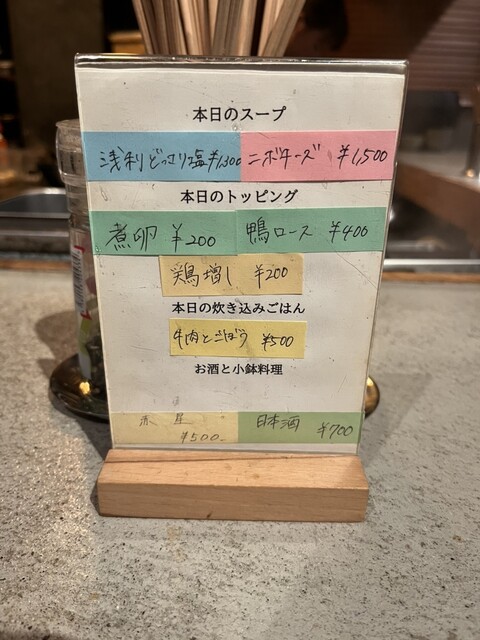 本日のスープ
浅利どっさり塩 ¥1,300 ニボチーズ ¥1,500
本日のトッピング
煮卵 ¥200 鴨ロース ¥400
鶏増し ¥200
本日の炊き込みごはん
牛肉とごぼう ¥500
お酒と小鉢料理
赤星 ¥500- 日本酒 ¥700